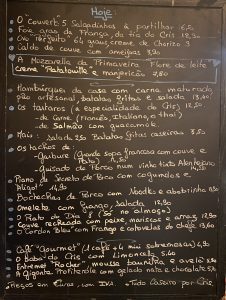 Hoje:
O "Couvert" 5 Salgadinhos a partilhar 6,50
Foie gras da França, da tia do Cris 12,90
Ovo perfeito 64 graus, creme de Chorizo 3
Caldo de couve com ameijoas 3,50
A Mozzarella da Trinaveira Flore de leite
creme "Ratatouille" e mangericão 2,80
Hambúrguer da casa com Carne maturada
pão artesanal batatas fritas e salada 13,40
Os tártaros (a especialidade do Cris) 12,50
- de Carne (Francês, Italiano, o thai)
- de Salmão com guacamole
Mais: Salada 2,50 Batatas fritas caseiras 3,50
Os tachos de:
- Garbure (Grande sopa francesa com couve e
Pato) 11,50
- Guisado de Porco num vinho tinto Alentejano
Piano de Secreto de Porco com cogumelos e
"Aligot" 14,90
Bochechas de Porco com Noodles e abobrinha
Omelete com Frango, salada 12,90
O Prato do Dia é: (só no almoço)
Couve recheada com peixe, mariscos e arroz 12,90
O Cordon Bleu com Frango e batavelas de chefe 13,60
Café "Gourmet" (1 café + 4 mini sobremesas) 4,90
O Baba do Cris com limoncelo 5,60
Entremet "Rocher", mousse baunilha e avelã
A Gigante Profiterole com gelado nata e chocolate 5,80
Preços em Euros, com IVA Tudo Caseiro por Cris